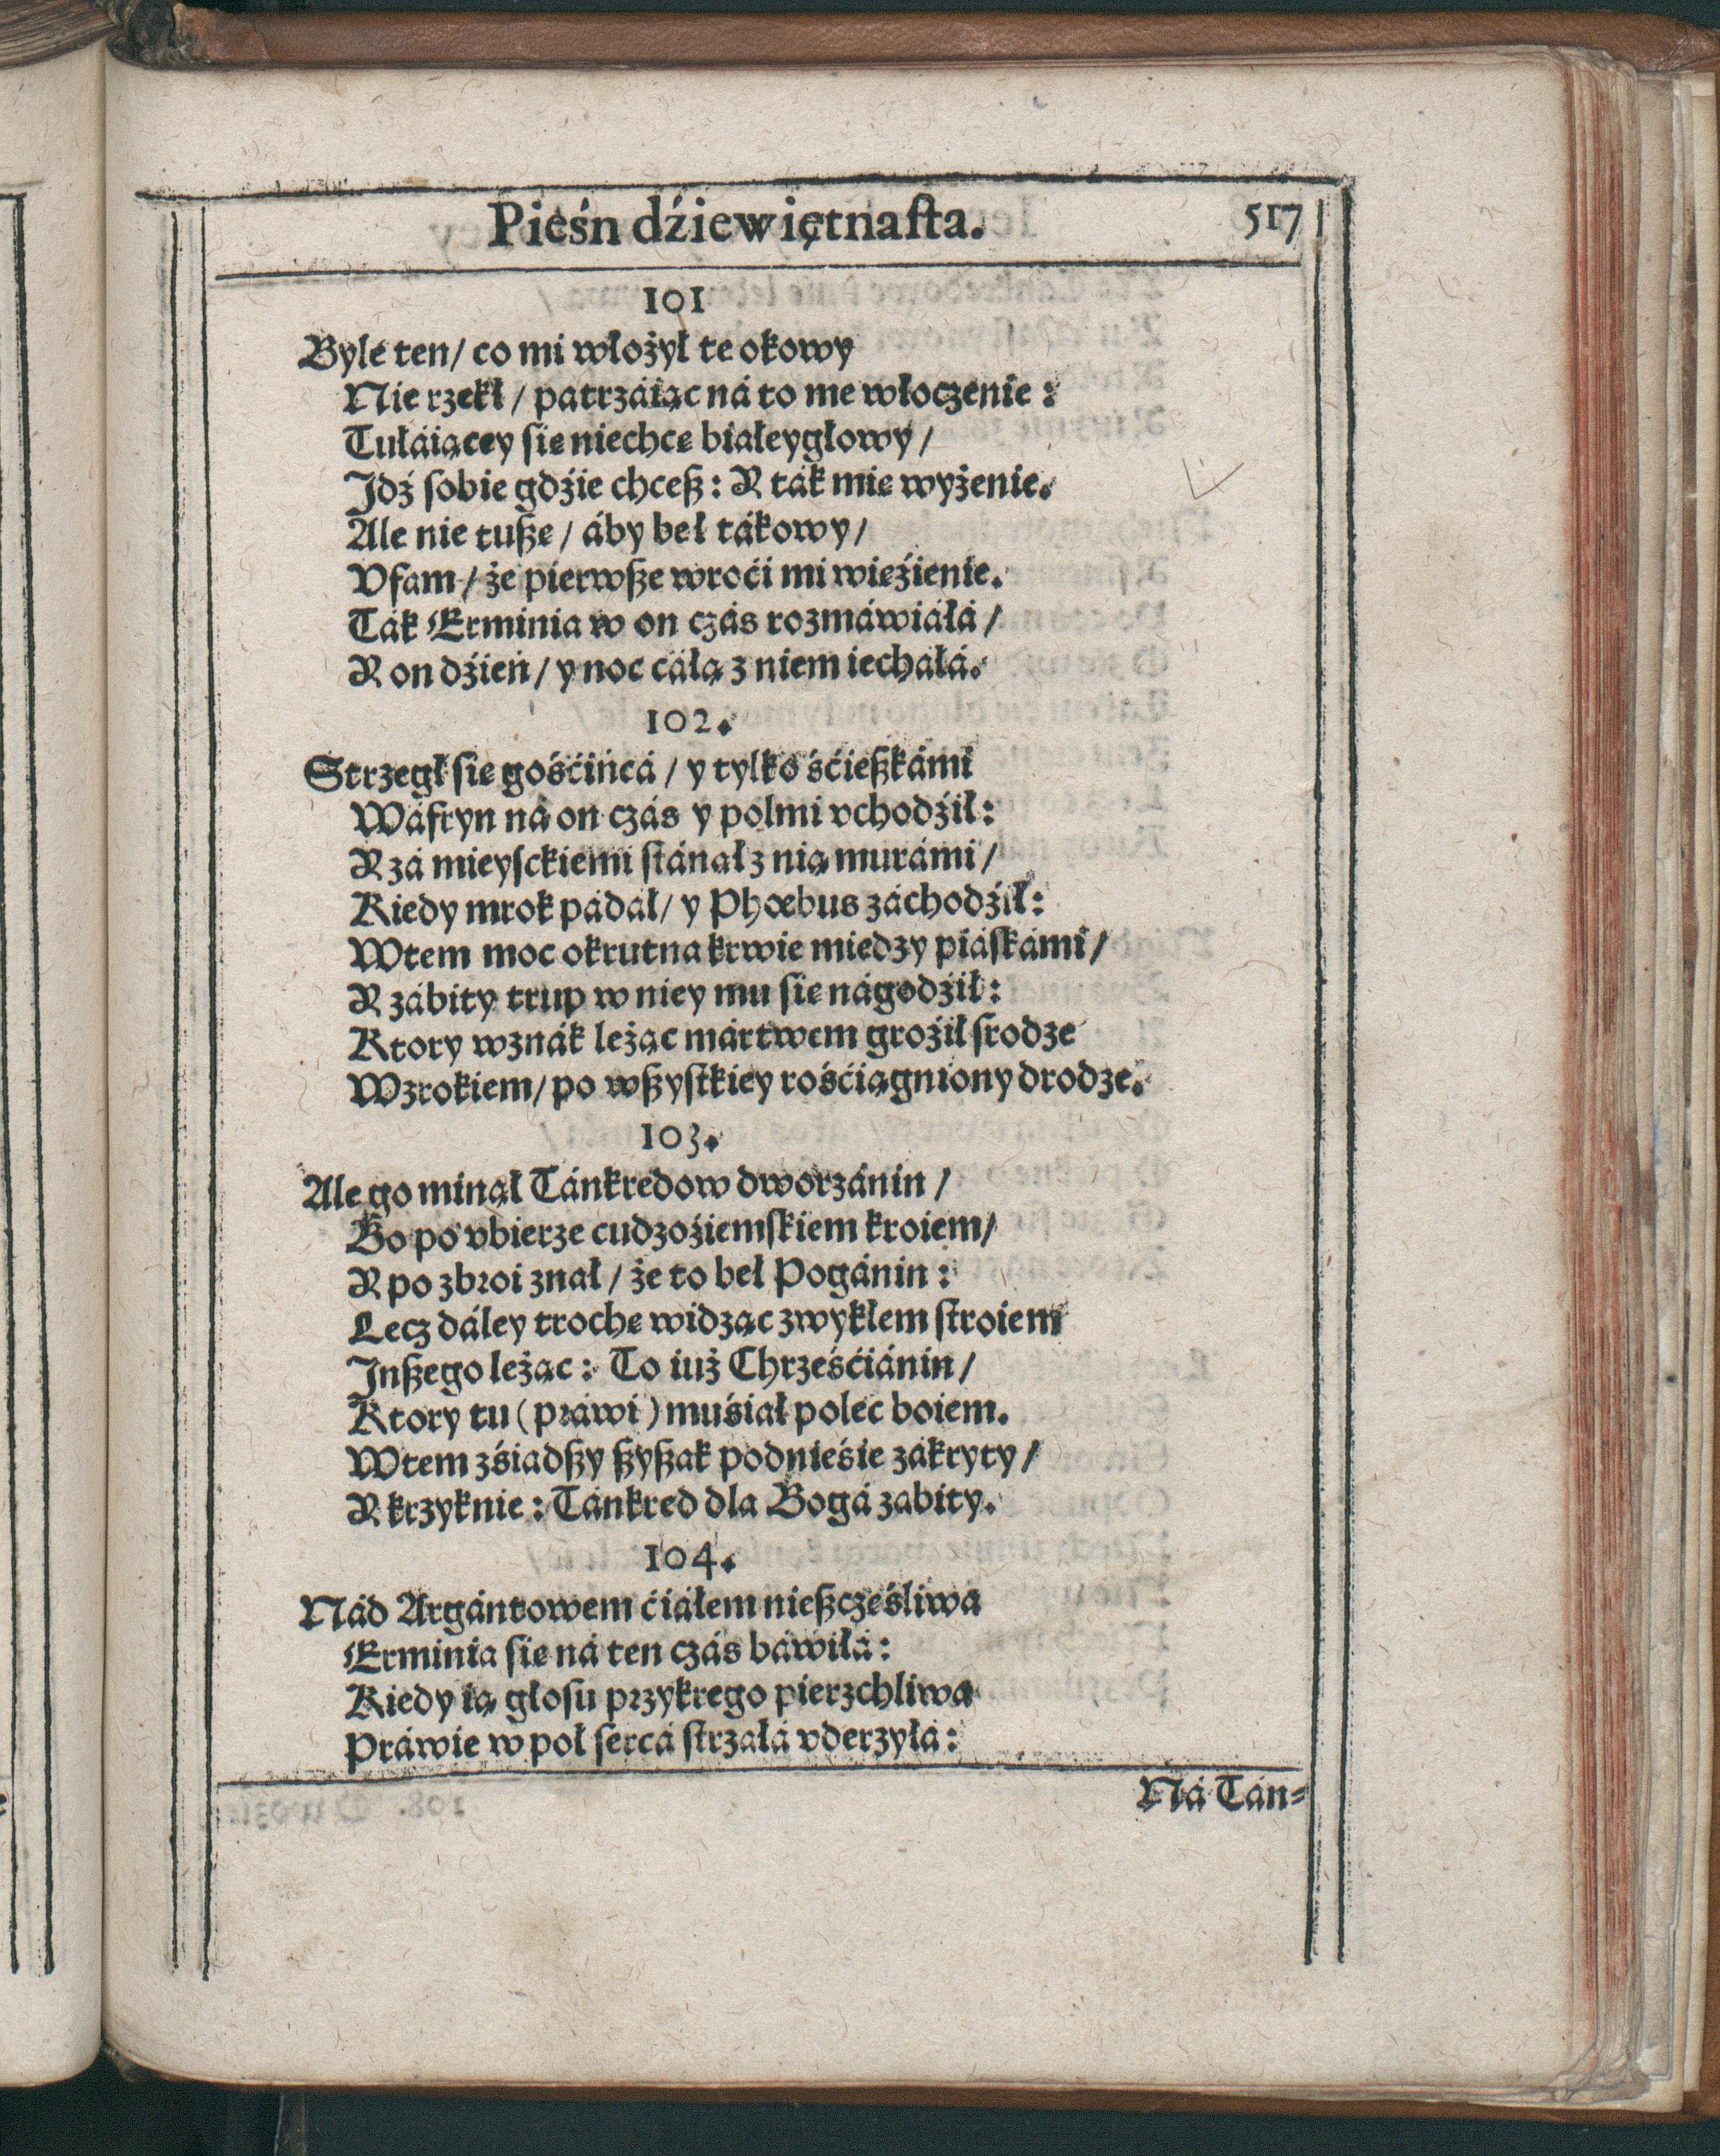 Pieśń dźiewiętnasta. 517
101
Byle ten/ co mi włożył te okowy
Nie rzekł/ patrzáiąc ná to me włoczenie:
Tułáiącey sie niechce białeygłowy/
Jdź sobie gdźie chcesz: A ták mie wyżenie.
Ale nie tusze/ áby beł tákowy/
Vfam/ że pierwsze wroći mi wieźienie.
Ták Erminia w on czás rozmáwiáłá/
A on dźień/ y noc cáłą z niem iecháłá.
102.
Strzegł sie gośćińcá/ y tylko śćieszkámi
Wáfryn ná on czás y polmi vchodźił:
A zá mieysckiemi stánął z nią murámi/
Kiedy mrok pádał/ y Phœbus záchodźił:
Wtem moc okrutna krwie miedzy piáskámi/
A zábity trup w niey mu sie nágodźił:
Ktory wznák leżąc mártwem groźił srodze
Wzrokiem/ po wszystkiey rośćiągniony drodze.
103.
Ale go minął Tánkredow dworzánin/
Bo po vbierze cudzoźiemskiem kroiem/
A po zbroi znał/ że to beł Pogánin:
Lecz dáley troche widząc zwykłem stroiem
Jnszego leżąc: To iuż Chrześćiánin/
Ktory tu (práwi) muśiał polec boiem.
Wtem zśiadszy szyszak podnieśie zákryty/
A krzyknie: Tánkred dla Bogá zabity.
104.
Nád Argántowem ćiáłem nieszcześliwa
Erminia sie ná ten czás báwiłá:
Kiedy ią głosu przykrego pierzchliwa
Práwie w poł sercá strzáłá vderzyłá:
Ná Tán-